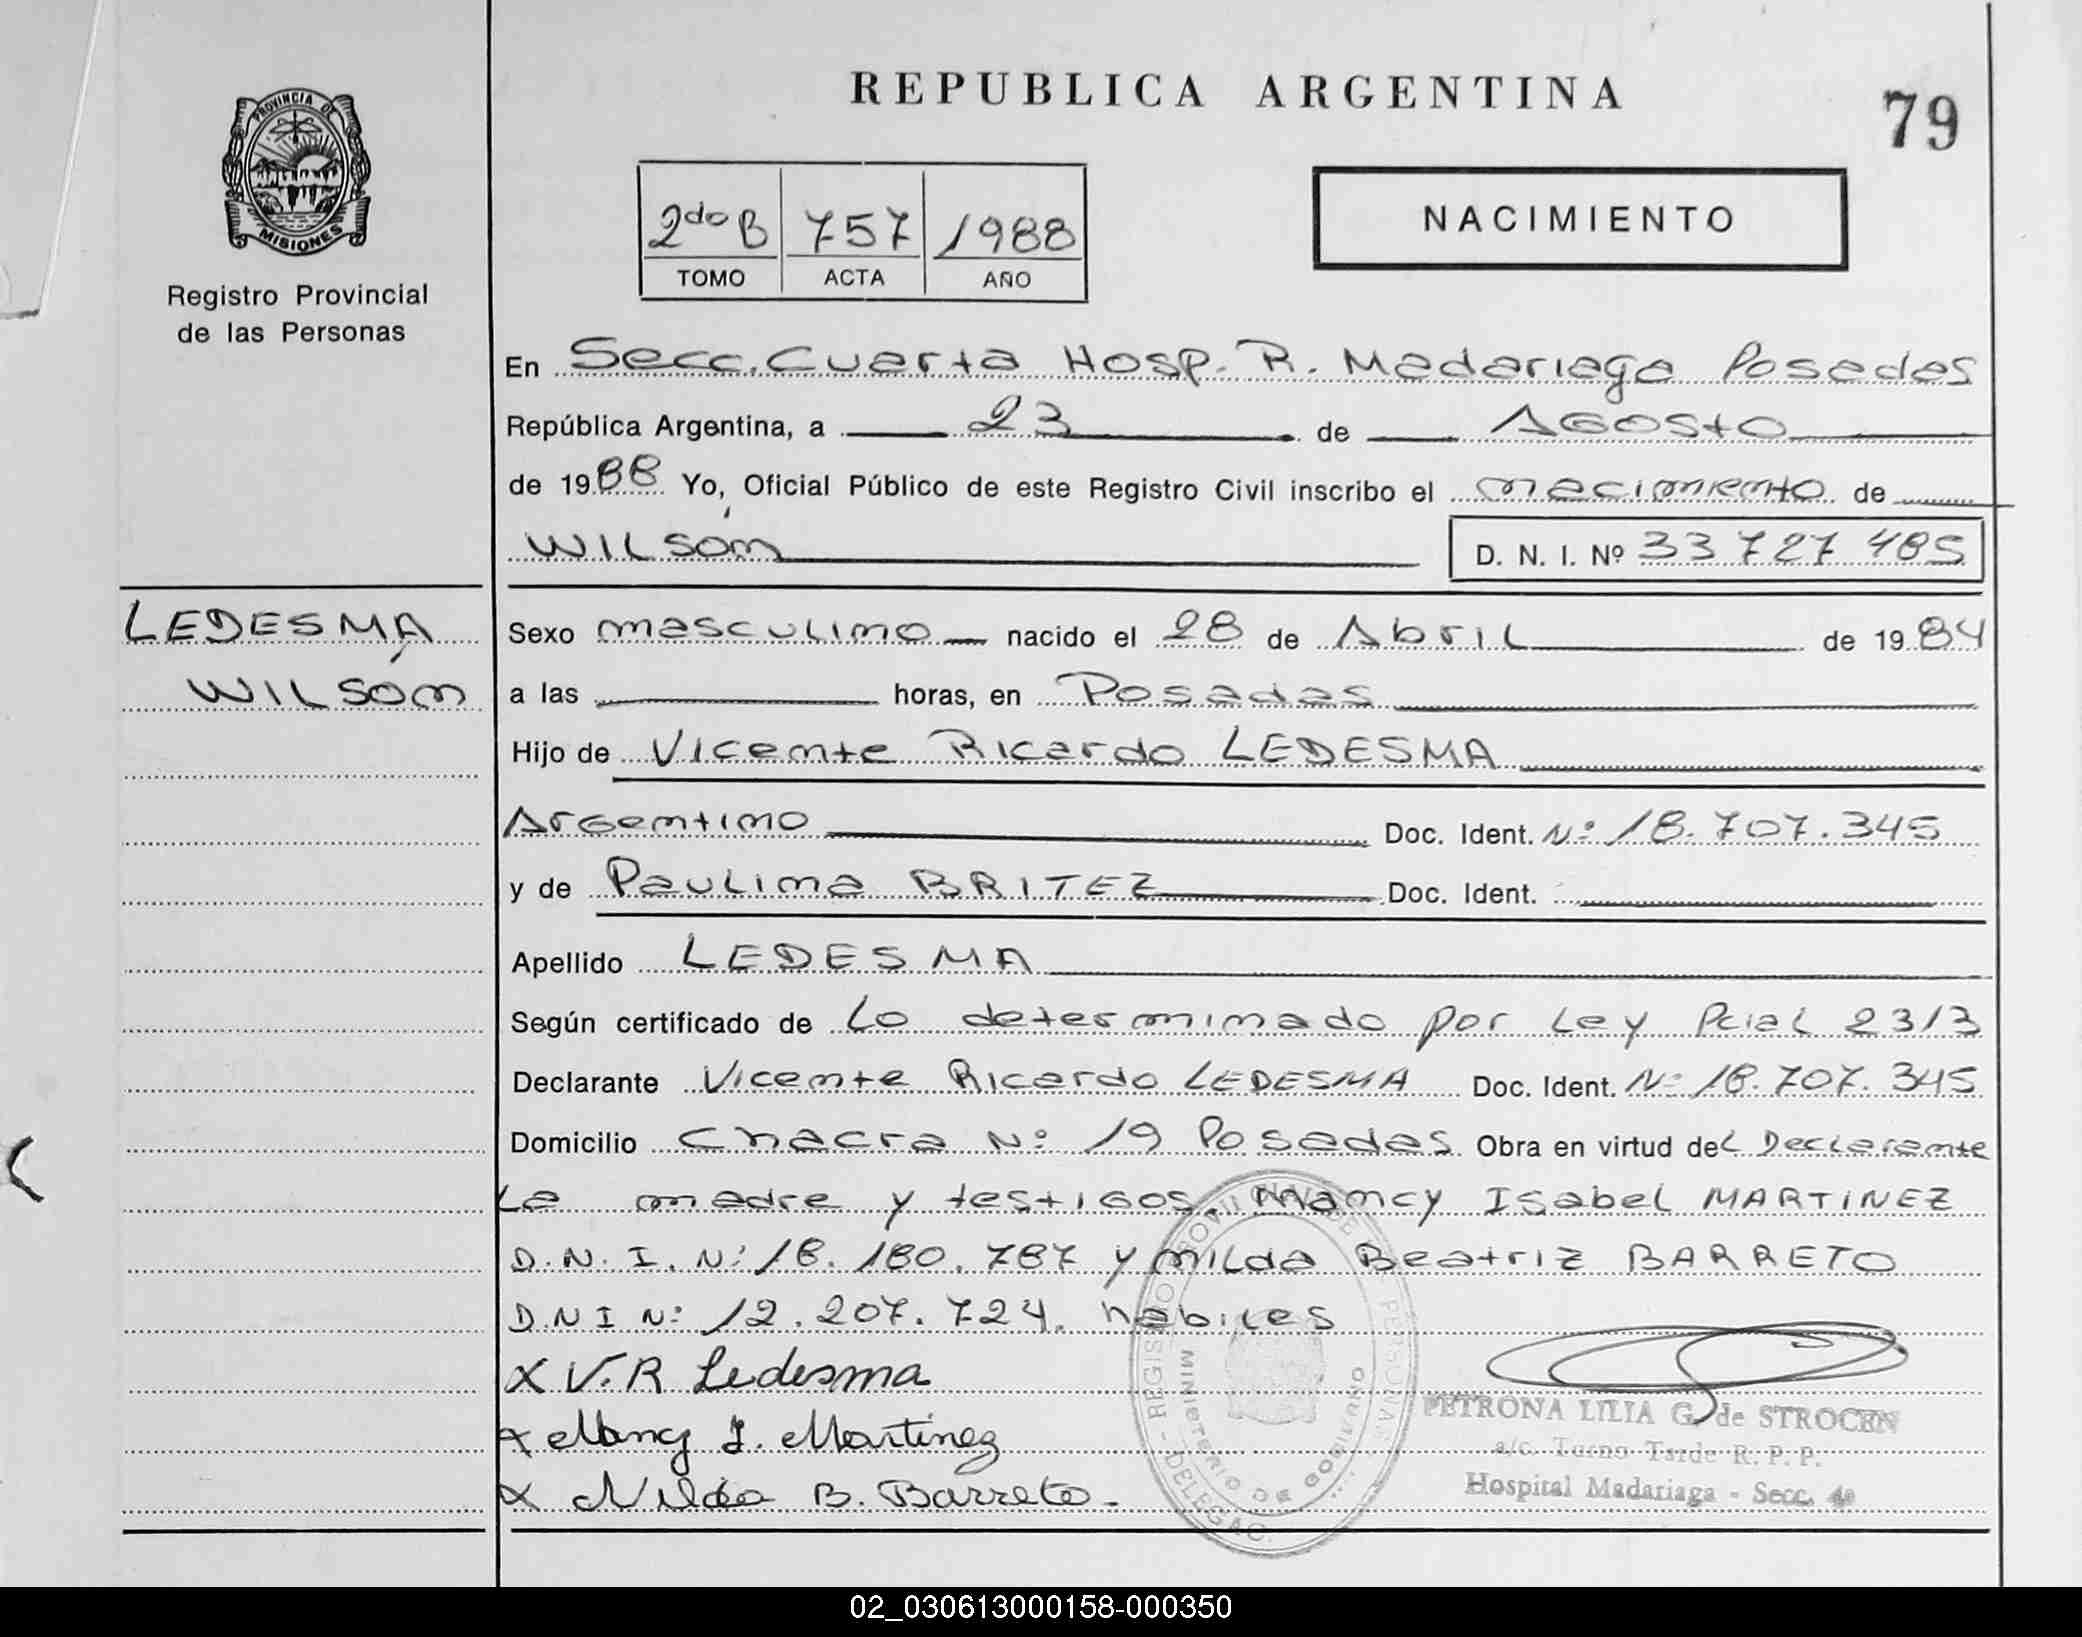 REPUBLICA ARGENTINA
79
PROVINCIA DE
MISIONES
Registro Provincial
de las Personas
2do B 757 1988
TOMO ACTA AÑO
NACIMIENTO
En Secc. Cuarta Hosp. R. Madariaga Posadas
República Argentina, a 23 de Agosto
de 1988 Yo, Oficial Público de este Registro Civil inscribo el nacimiento de
WILSón D. N. I. Nº 33727485
LEDESMA
WILSón
Sexo masculino nacido el 28 de Abril de 1984
a las horas, en Posadas
Hijo de Vicente Ricardo LEDESMA
Argentino Doc. Ident. Nº 18.707.345
y de Paulina BRITEZ Doc. Ident.
Apellido LEDESMA
Según certificado de Lo determinado por Ley Pcial 2313
Declarante Vicente Ricardo LEDESMA Doc. Ident. Nº 18.707.345
Domicilio Chacra Nº 19 Posadas Obra en virtud del Declarante
La madre y testigos. Nancy Isabel MARTINEZ
D.N.I. Nº 18.180.787 y Nilda Beatriz BARRETO
D.N.I Nº 12.207.724. habiles
X V.R Ledesma
X Nancy I. Martinez
X Nilda B. Barreto.
PETRONA LILIA G. de STROCEN
a/c. Turno Tarde R. P. P.
Hospital Madariaga - Secc. 4ª
MINISTERIO DE GOBIERNO
02_030613000158-000350